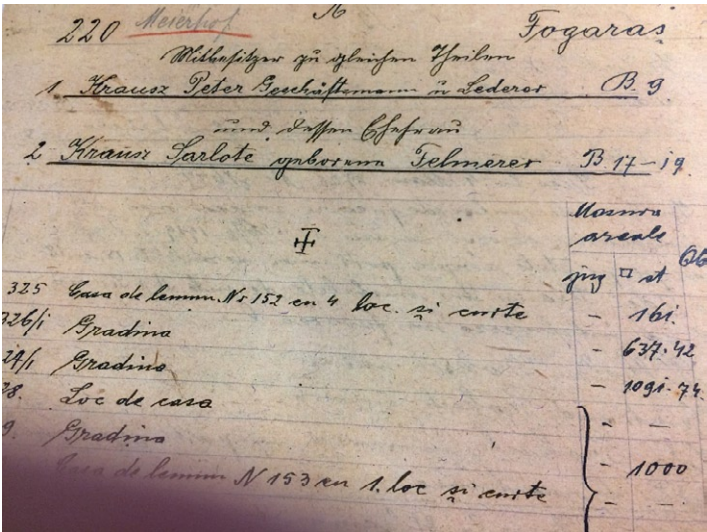 220 Meierhof Fogaras
Mitbesitzer zu gleichen Theilen
1 Krausz Peter Geschäftsmann u Lederer B. 9
und dessen Ehefrau
2 Krausz Sarlote geborene Felmerer B 17-19.
Masura
areale
jug □ st
325 Casa de lemn. Nr 152 cu 4 loc. și curte - 161.
326/1 Gradina - 637.42
24/1 Gradina - 1091.74
28. Loc de casa - -
9. Gradina - 1000
Casa de lemn N 153 cu 1. loc și curte - -